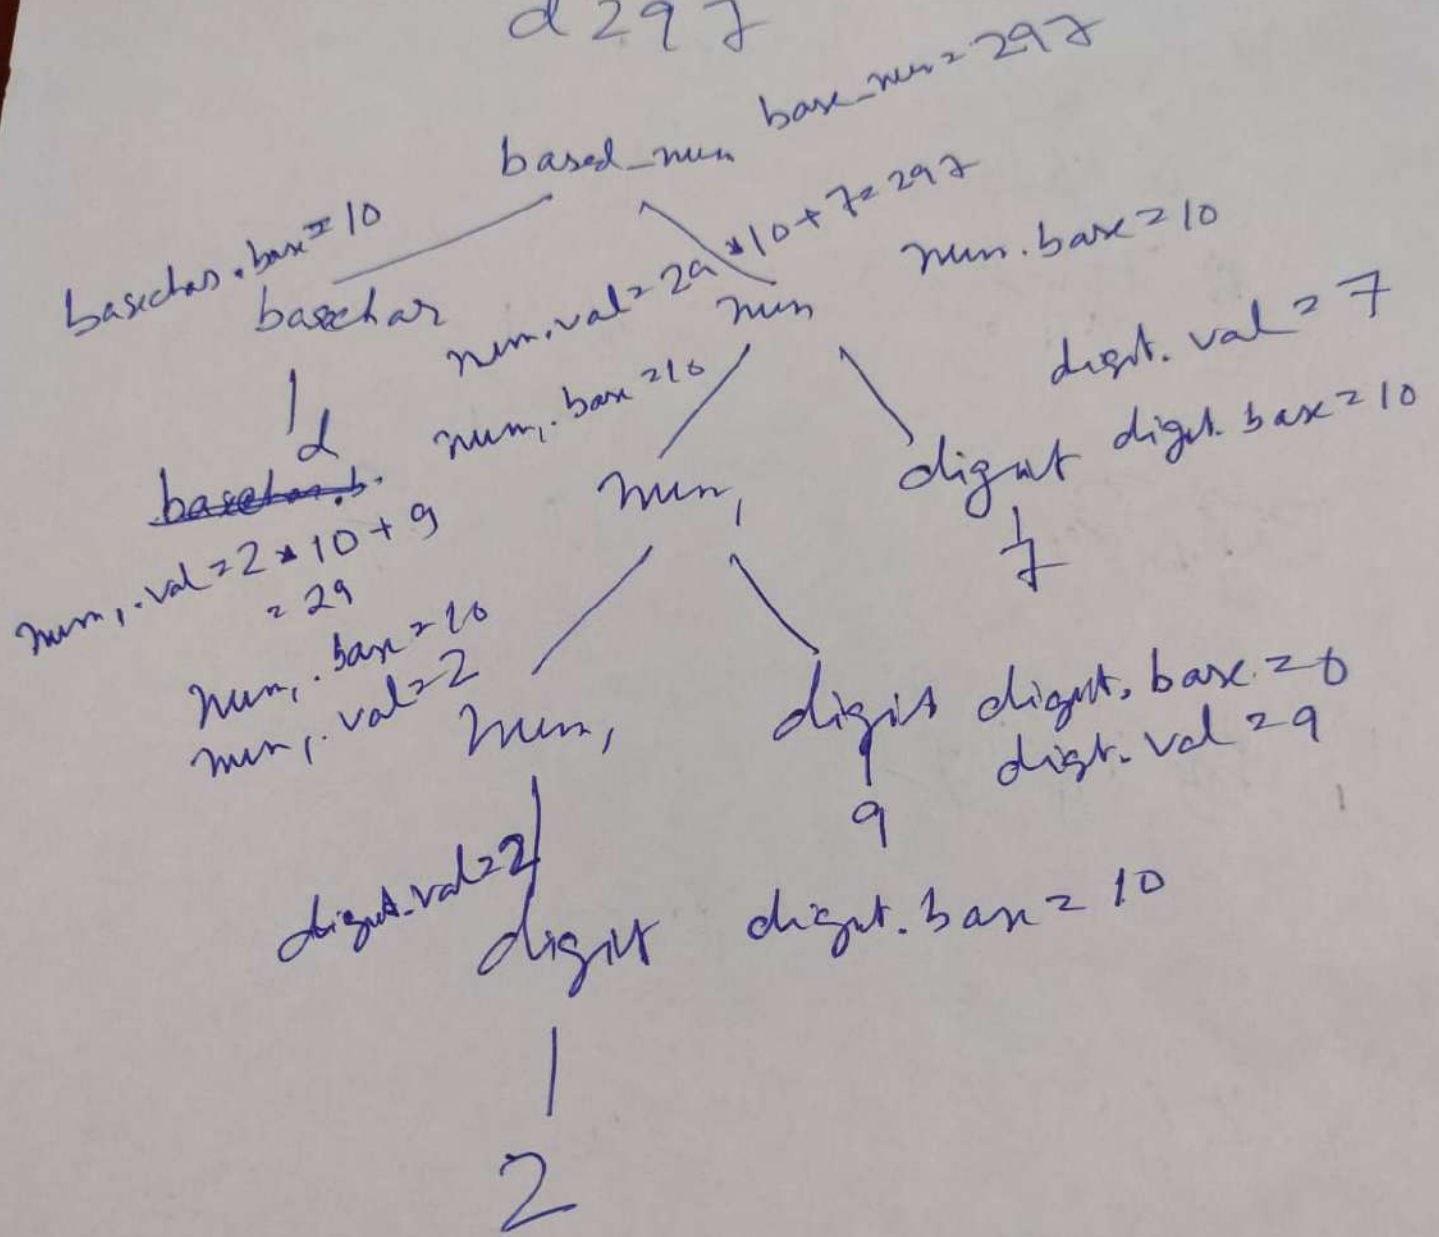 d297
based_num base_num = 297
basechar.base = 10
basechar
num.val = 29 * 10 + 7 = 297
num
num.base = 10
d
basechar.b.
num1.base = 10
num1
digit
digit.val = 7
digit.base = 10
7
num1.val = 2 * 10 + 9
= 29
num1.base = 10
num1.val = 2
num1
digit digit.base = 0
digit.val = 9
9
digit.val = 2
digit digit.base = 10
2